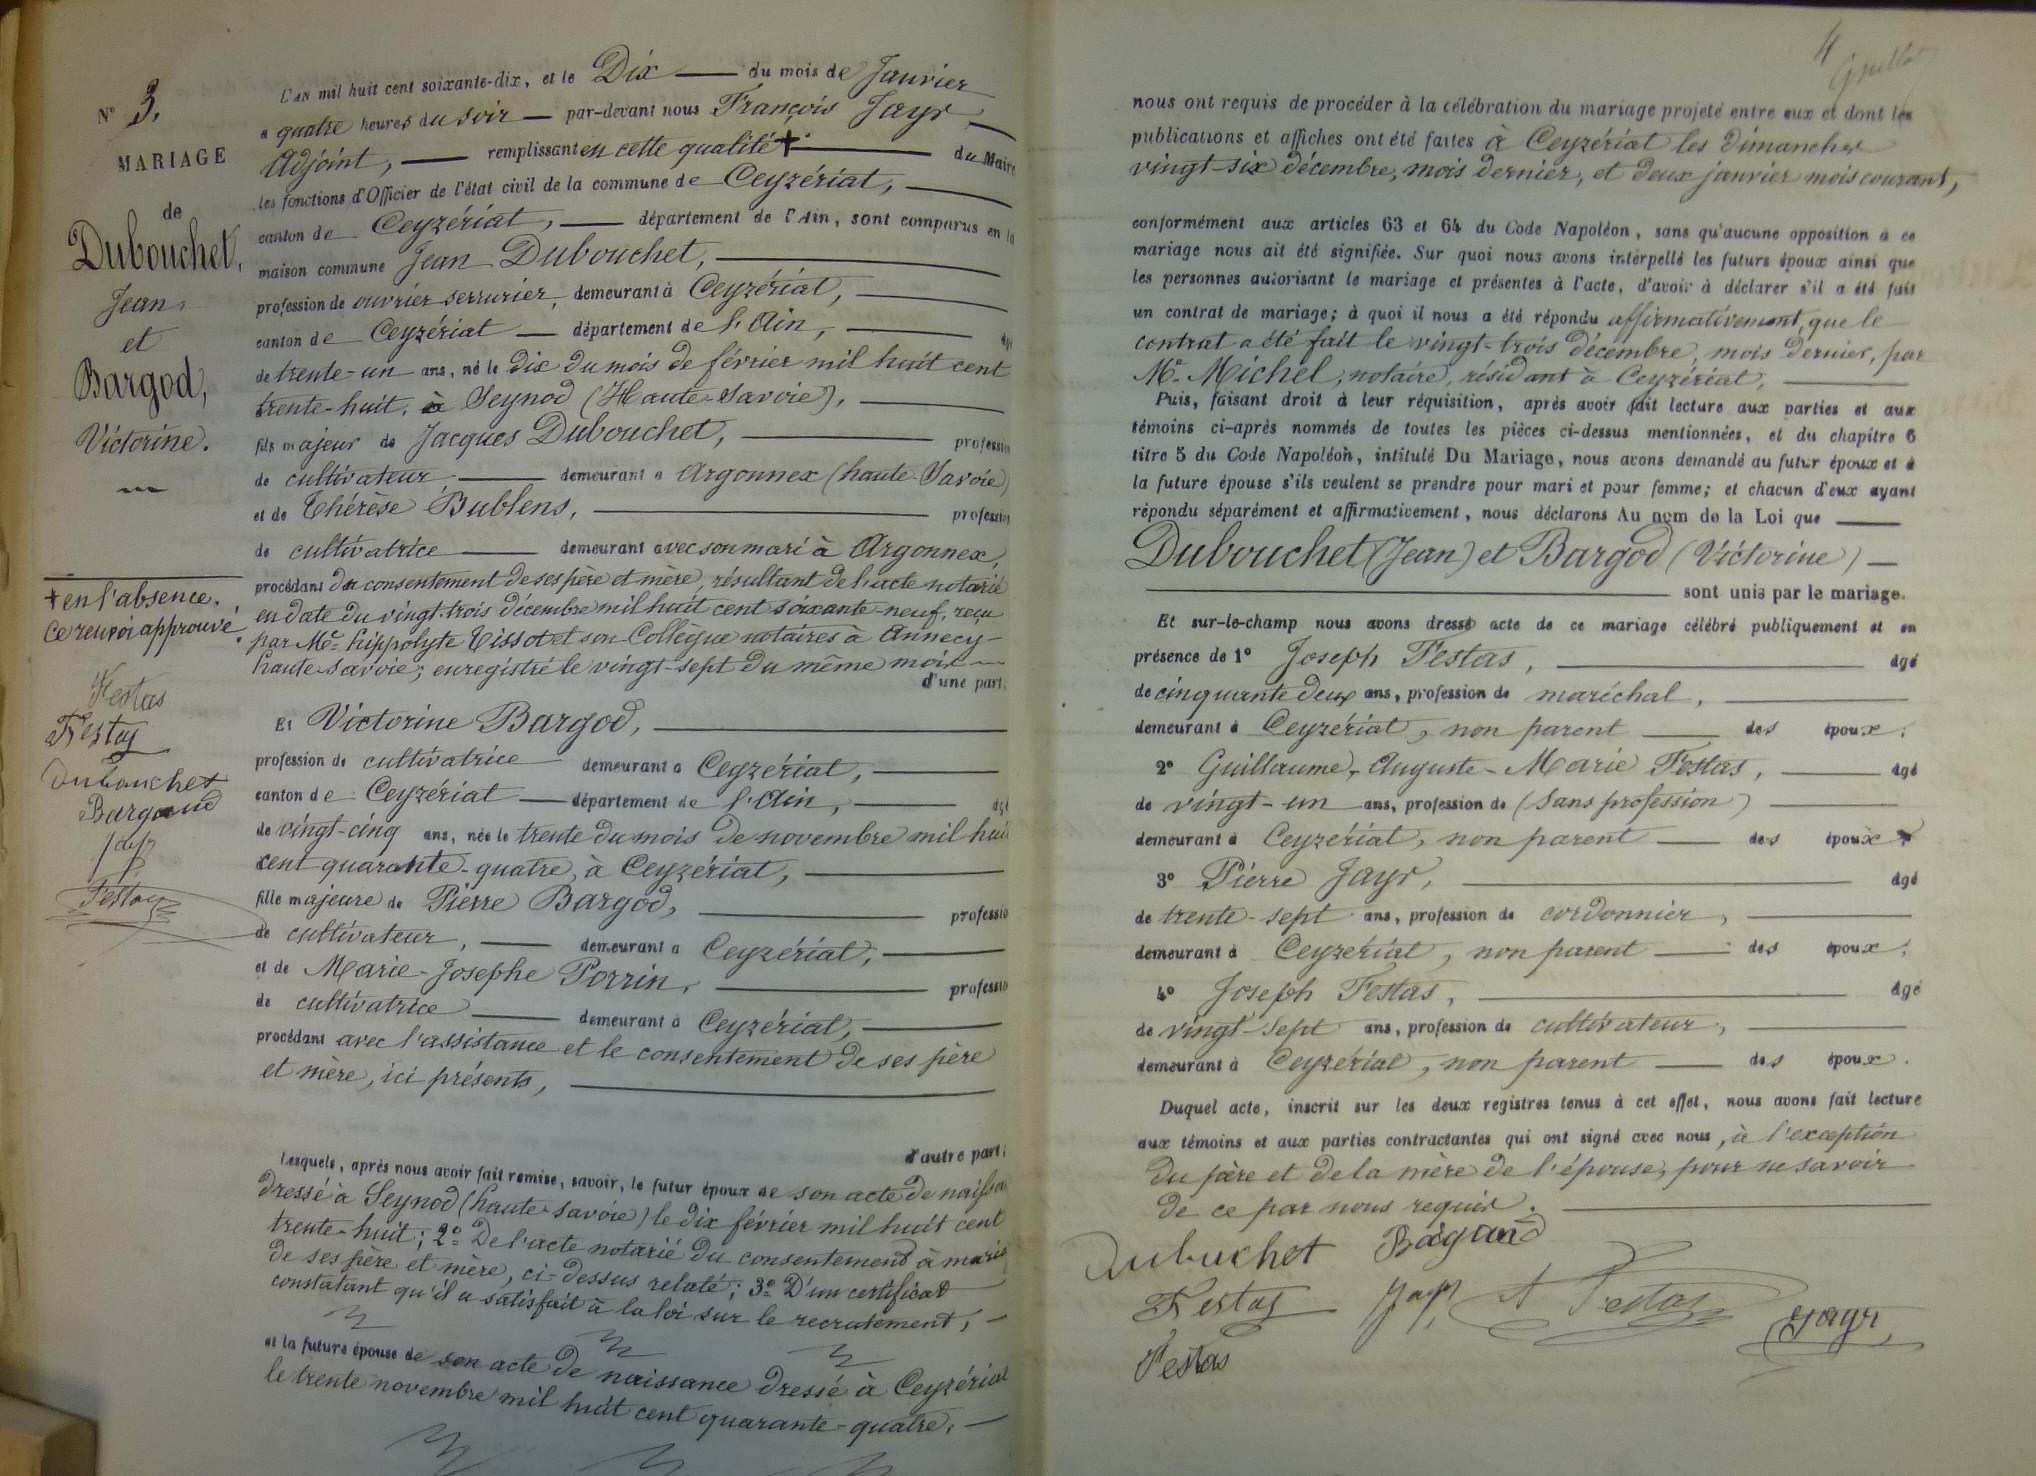 N° 3.
MARIAGE
de
Dubouchet,
Jean
et
Bargod,
Victorine.
+ en l'absence.
Ce renvoi approuvé.
Festas
Festas
Dubouchet
Bargaud
Jayr
Festas
L'AN mil huit cent soixante-dix, et le Dix du mois de Janvier
a quatre heures du soir par-devant nous François Jayr
Adjoint, remplissant en cette qualité + du Maire
les fonctions d'Officier de l'état civil de la commune de Ceyzériat,
canton de Ceyzériat, département de l'Ain, sont comparus en la
maison commune Jean Dubouchet,
profession de ouvrier serrurier, demeurant à Ceyzériat,
canton de Ceyzériat département de l'Ain, âgé
de trente-un ans, né le dix du mois de février mil huit cent
trente-huit, à Seynod (Haute-Savoie),
fils majeur de Jacques Dubouchet, profession
de cultivateur demeurant a Argonnex (haute-Savoie)
et de Thérèse Bublens, profession
de cultivatrice demeurant avec son mari à Argonnex,
procédant du consentement de ses père et mère, résultant de l'acte notarié
en date du vingt-trois décembre mil huit cent soixante-neuf, reçu
par Me hippolyte Tissot et son Collègue notaires à Annecy
haute-savoie, enregistré le vingt-sept du même mois
d'une part,
Et Victorine Bargod,
profession de cultivatrice demeurant a Ceyzériat,
canton de Ceyzériat département de l'Ain, âgé
de vingt-cinq ans, née le trente du mois de novembre mil huit
cent quarante-quatre, à Ceyzériat,
fille majeure de Pierre Bargod, professio
de cultivateur, demeurant a Ceyzériat,
et de Marie-Josephe Porrin, professio
de cultivatrice demeurant à Ceyzériat,
procédant avec l'assistance et le consentement de ses père
et mère, ici présents,
d'autre part;
Lesquels, après nous avoir fait remise, savoir, le futur époux de son acte de naissa
dressé à Seynod (haute-savoie) le dix février mil huit cent
trente-huit; 2° De l'acte notarié du consentement à maria
de ses père et mère, ci-dessus relaté; 3° D'un certificat
constatant qu'il a satisfait à la loi sur le recrutement,
et la future épouse de son acte de naissance dressé à Ceyzériat
le trente novembre mil huit cent quarante-quatre,
4
nous ont requis de procéder à la célébration du mariage projeté entre eux et dont les
publications et affiches ont été faites à Ceyzériat les dimanches
vingt-six décembre, mois dernier, et deux janvier mois courant,
conformément aux articles 63 et 64 du Code Napoléon, sans qu'aucune opposition à ce
mariage nous ait été signifiée. Sur quoi nous avons interpellé les futurs époux ainsi que
les personnes autorisant le mariage et présentes à l'acte, d'avoir à déclarer s'il a été fait
un contrat de mariage; à quoi il nous a été répondu affirmativement, que le
contrat a été fait le vingt-trois décembre, mois dernier, par
Me Michel, notaire, résidant à Ceyzériat,
Puis, faisant droit à leur réquisition, après avoir fait lecture aux parties et aux
témoins ci-après nommés de toutes les pièces ci-dessus mentionnées, et du chapitre 6
titre 5 du Code Napoléon, intitulé Du Mariage, nous avons demandé au futur époux et à
la future épouse s'ils veulent se prendre pour mari et pour femme; et chacun d'eux ayant
répondu séparément et affirmativement, nous déclarons Au nom de la Loi que
Dubouchet (Jean) et Bargod (Victorine)
sont unis par le mariage.
Et sur-le-champ nous avons dressé acte de ce mariage célébré publiquement et en
présence de 1° Joseph Festas, âgé
de cinquante deux ans, profession de maréchal,
demeurant à Ceyzériat, non parent des époux;
2° Guillaume-Auguste-Marie Festas, âgé
de vingt-un ans, profession de (sans profession)
demeurant à Ceyzériat, non parent des époux
3° Pierre Jayr, âgé
de trente-sept ans, profession de cordonnier,
demeurant à Ceyzériat, non parent des époux;
4° Joseph Festas, âgé
de vingt-sept ans, profession de cultivateur,
demeurant à Ceyzériat, non parent des époux.
Duquel acte, inscrit sur les deux registres tenus à cet effet, nous avons fait lecture
aux témoins et aux parties contractantes qui ont signé avec nous, à l'exception
du père et de la mère de l'épouse, pour ne savoir
de ce par nous requis.
Dubuchet Bargaud
Festas Jayr A Festas Jayr
Festas